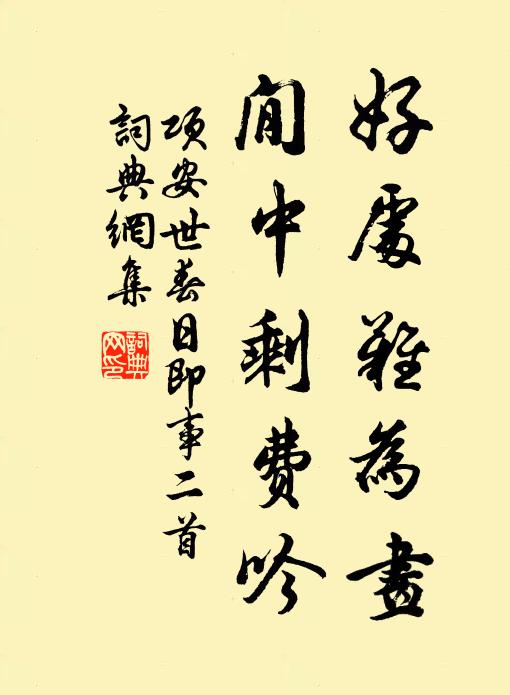 好處難為畫
閒中剩費吟
項安世春日即事二首
詞典網集
詞典
网印